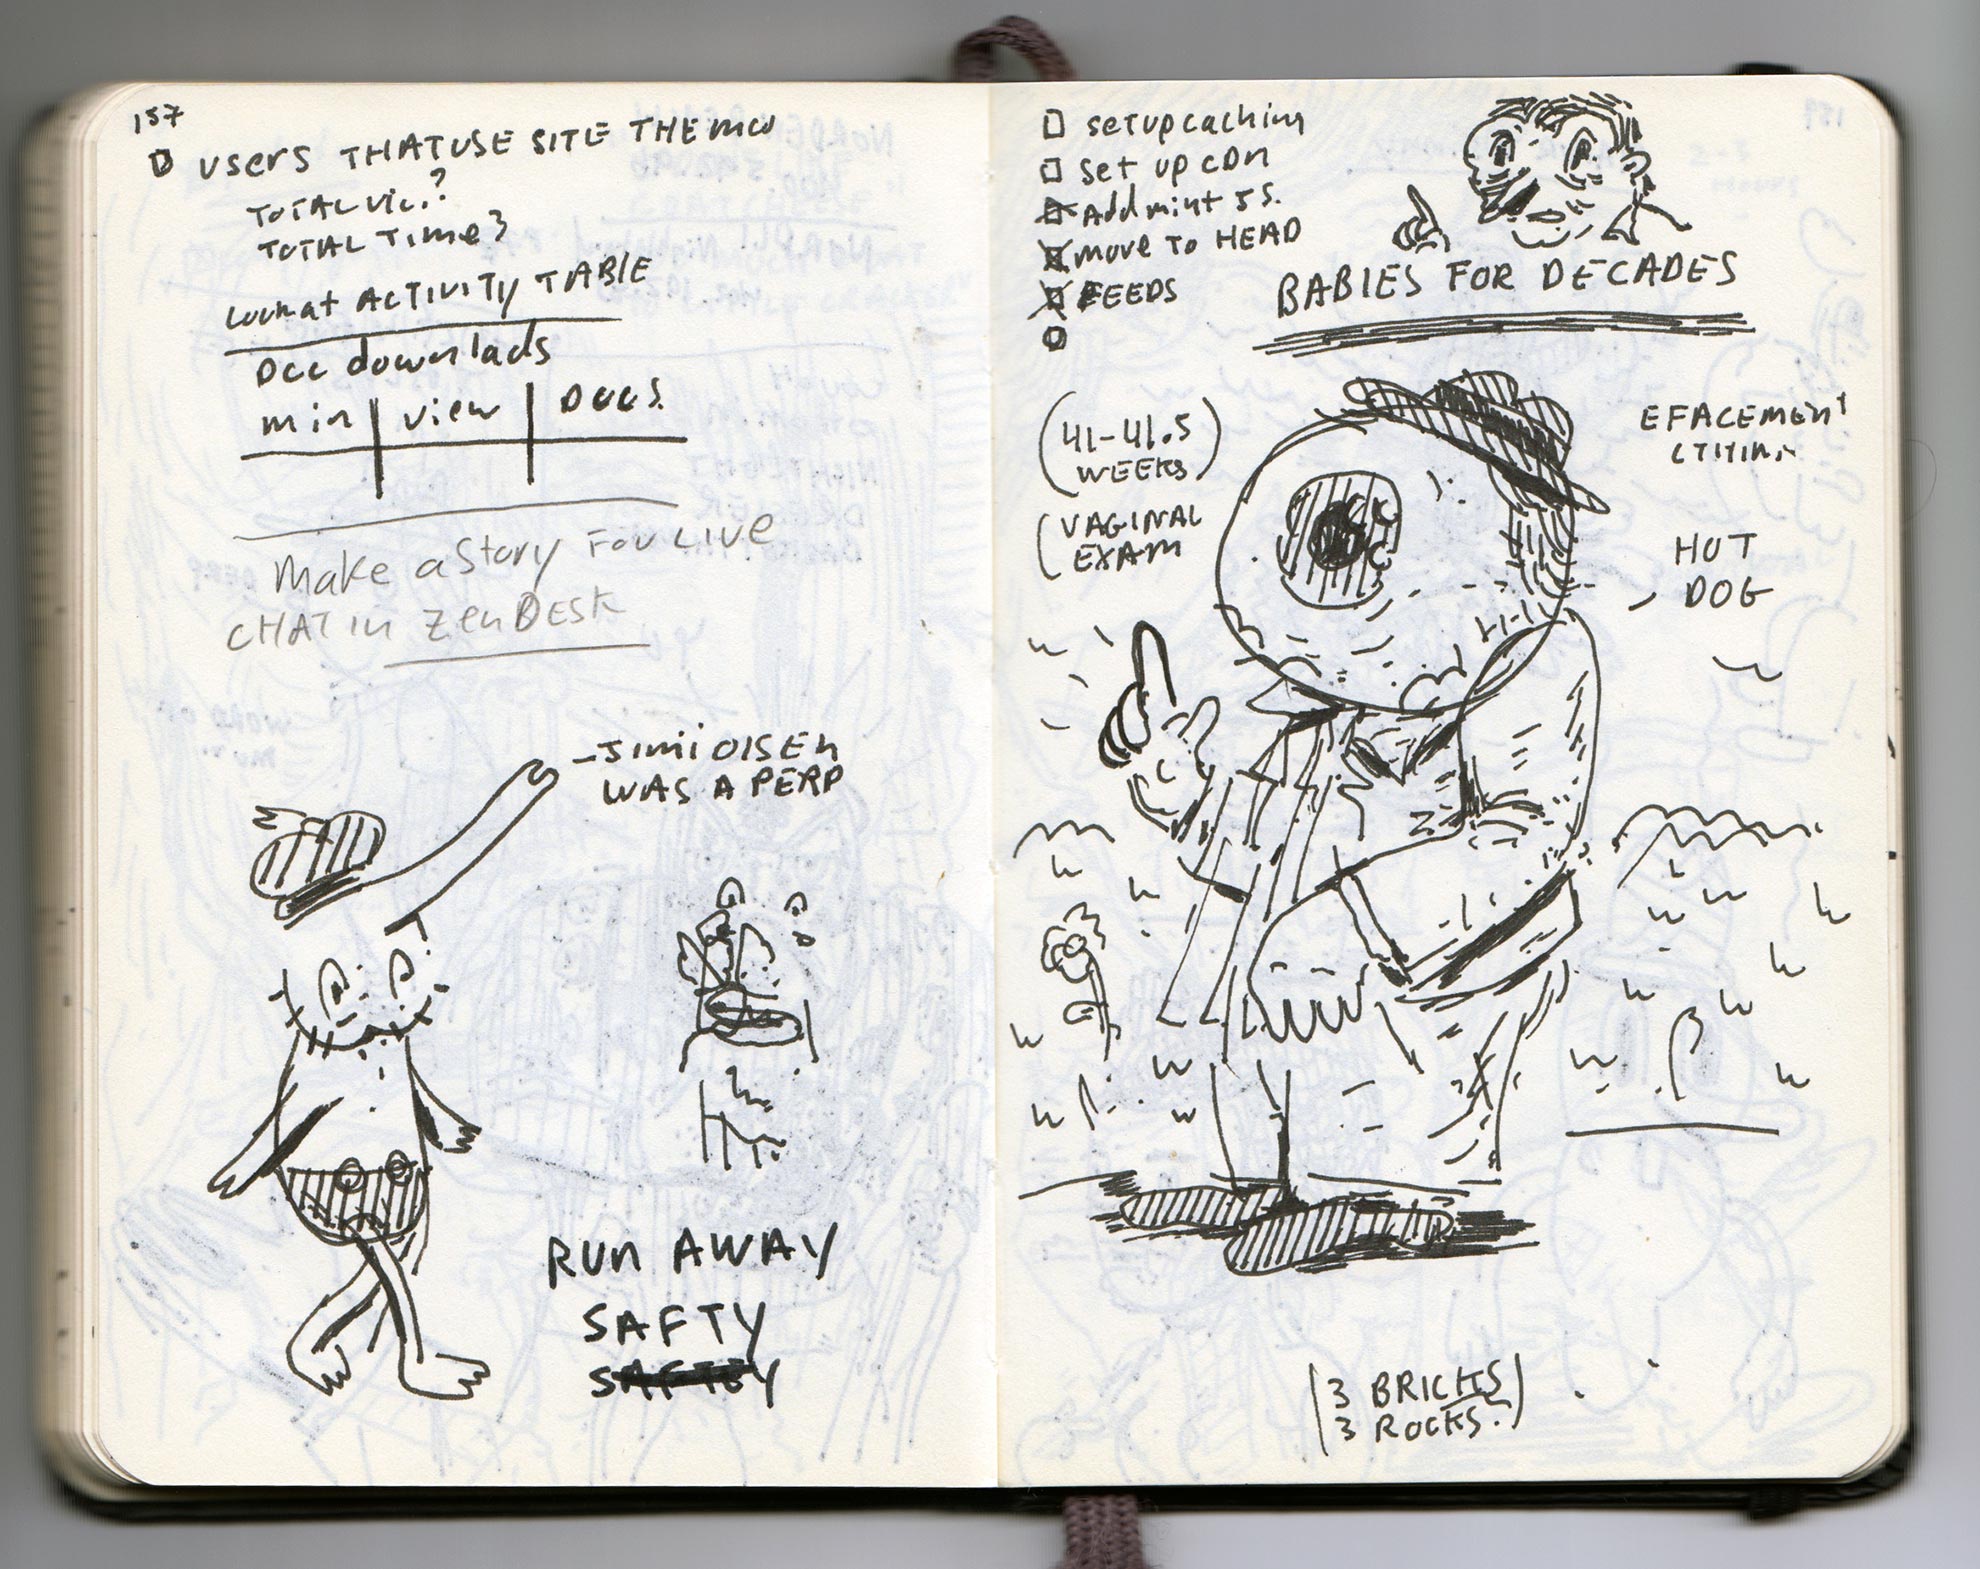 157
USERS THAT USE SITE THE MOST
TOTAL VIC.?
TOTAL TIME?
LOOK AT ACTIVITY TABLE
DOC downlads
min | view | DOCS.
Make a Story FOR LIVE
CHAT in ZenDESK
- JIMI OLSEN
WAS A PERP
RUN AWAY
SAFTY
setup caching
set up CDN
Add mint JS.
move TO HEAD
FEEDS
BABIES FOR DECADES
(41-41.5
WEEKS)
(VAGINAL
EXAM
EFACEMENT
HOT
DOG
(3 BRICKS)
3 ROCKS.)